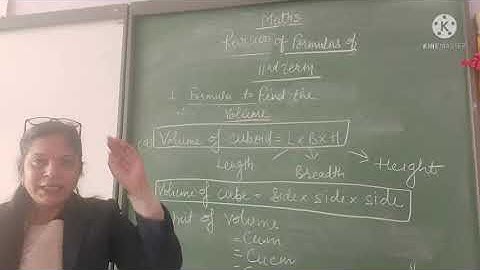 Maths
Revision of Formulas of
IInd term
1. Formula to find the
Volume
(a) Volume of cuboid = L x B x H
Length
Breadth
Height
Volume of cube = Side x side x side
Unit of Volume
= Cu m
= Cu cm
KINEMASTER